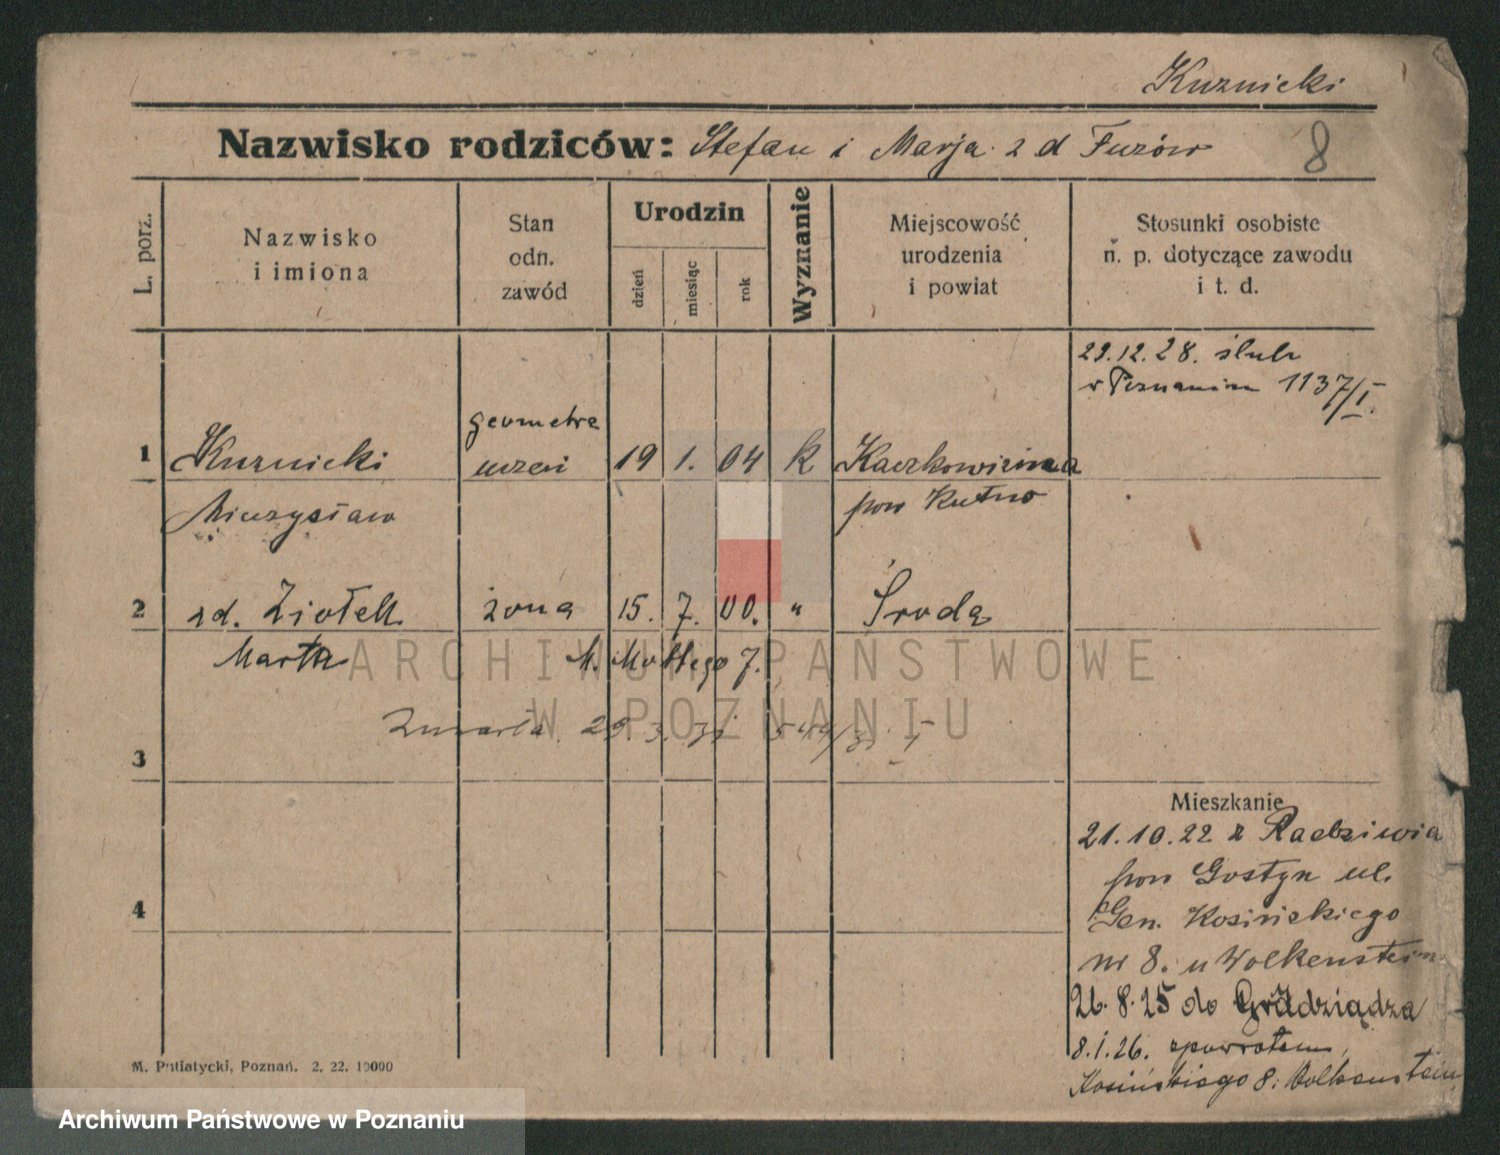 Kuznicki
Nazwisko rodziców: Stefan i Marja z d Furów
8
L. porz.
Nazwisko
i imiona
Stan
odn.
zawód
Urodzin
dzień
miesiąc
rok
Wyznanie
Miejscowość
urodzenia
i powiat
Stosunki osobiste
n. p. dotyczące zawodu
i t. d.
29.12.28. ślub
w Poznaniu 1137/I.
geometra
1 Kuznicki uczeń 19 1. 04 k Kaczkowizna
Mieczysław pow Kutno
2 zd. Ziołek żona 15. 7. 00. " Środa
Marta M. Mottego 7.
Zmarła
3
Mieszkanie
21.10.22 z Radziwia
pow Gostyn ul.
4 Gen. Kosińskiego
nr 8. u Wolkenstein
26.8.25 do Grudziądza
8.1.26. spowrotem,
Kosińskiego 8. Wolkenstein
M. Putiatycki, Poznań. 2. 22. 10000
ARCHIWUM PAŃSTWOWE
W POZNANIU
Archiwum Państwowe w Poznaniu